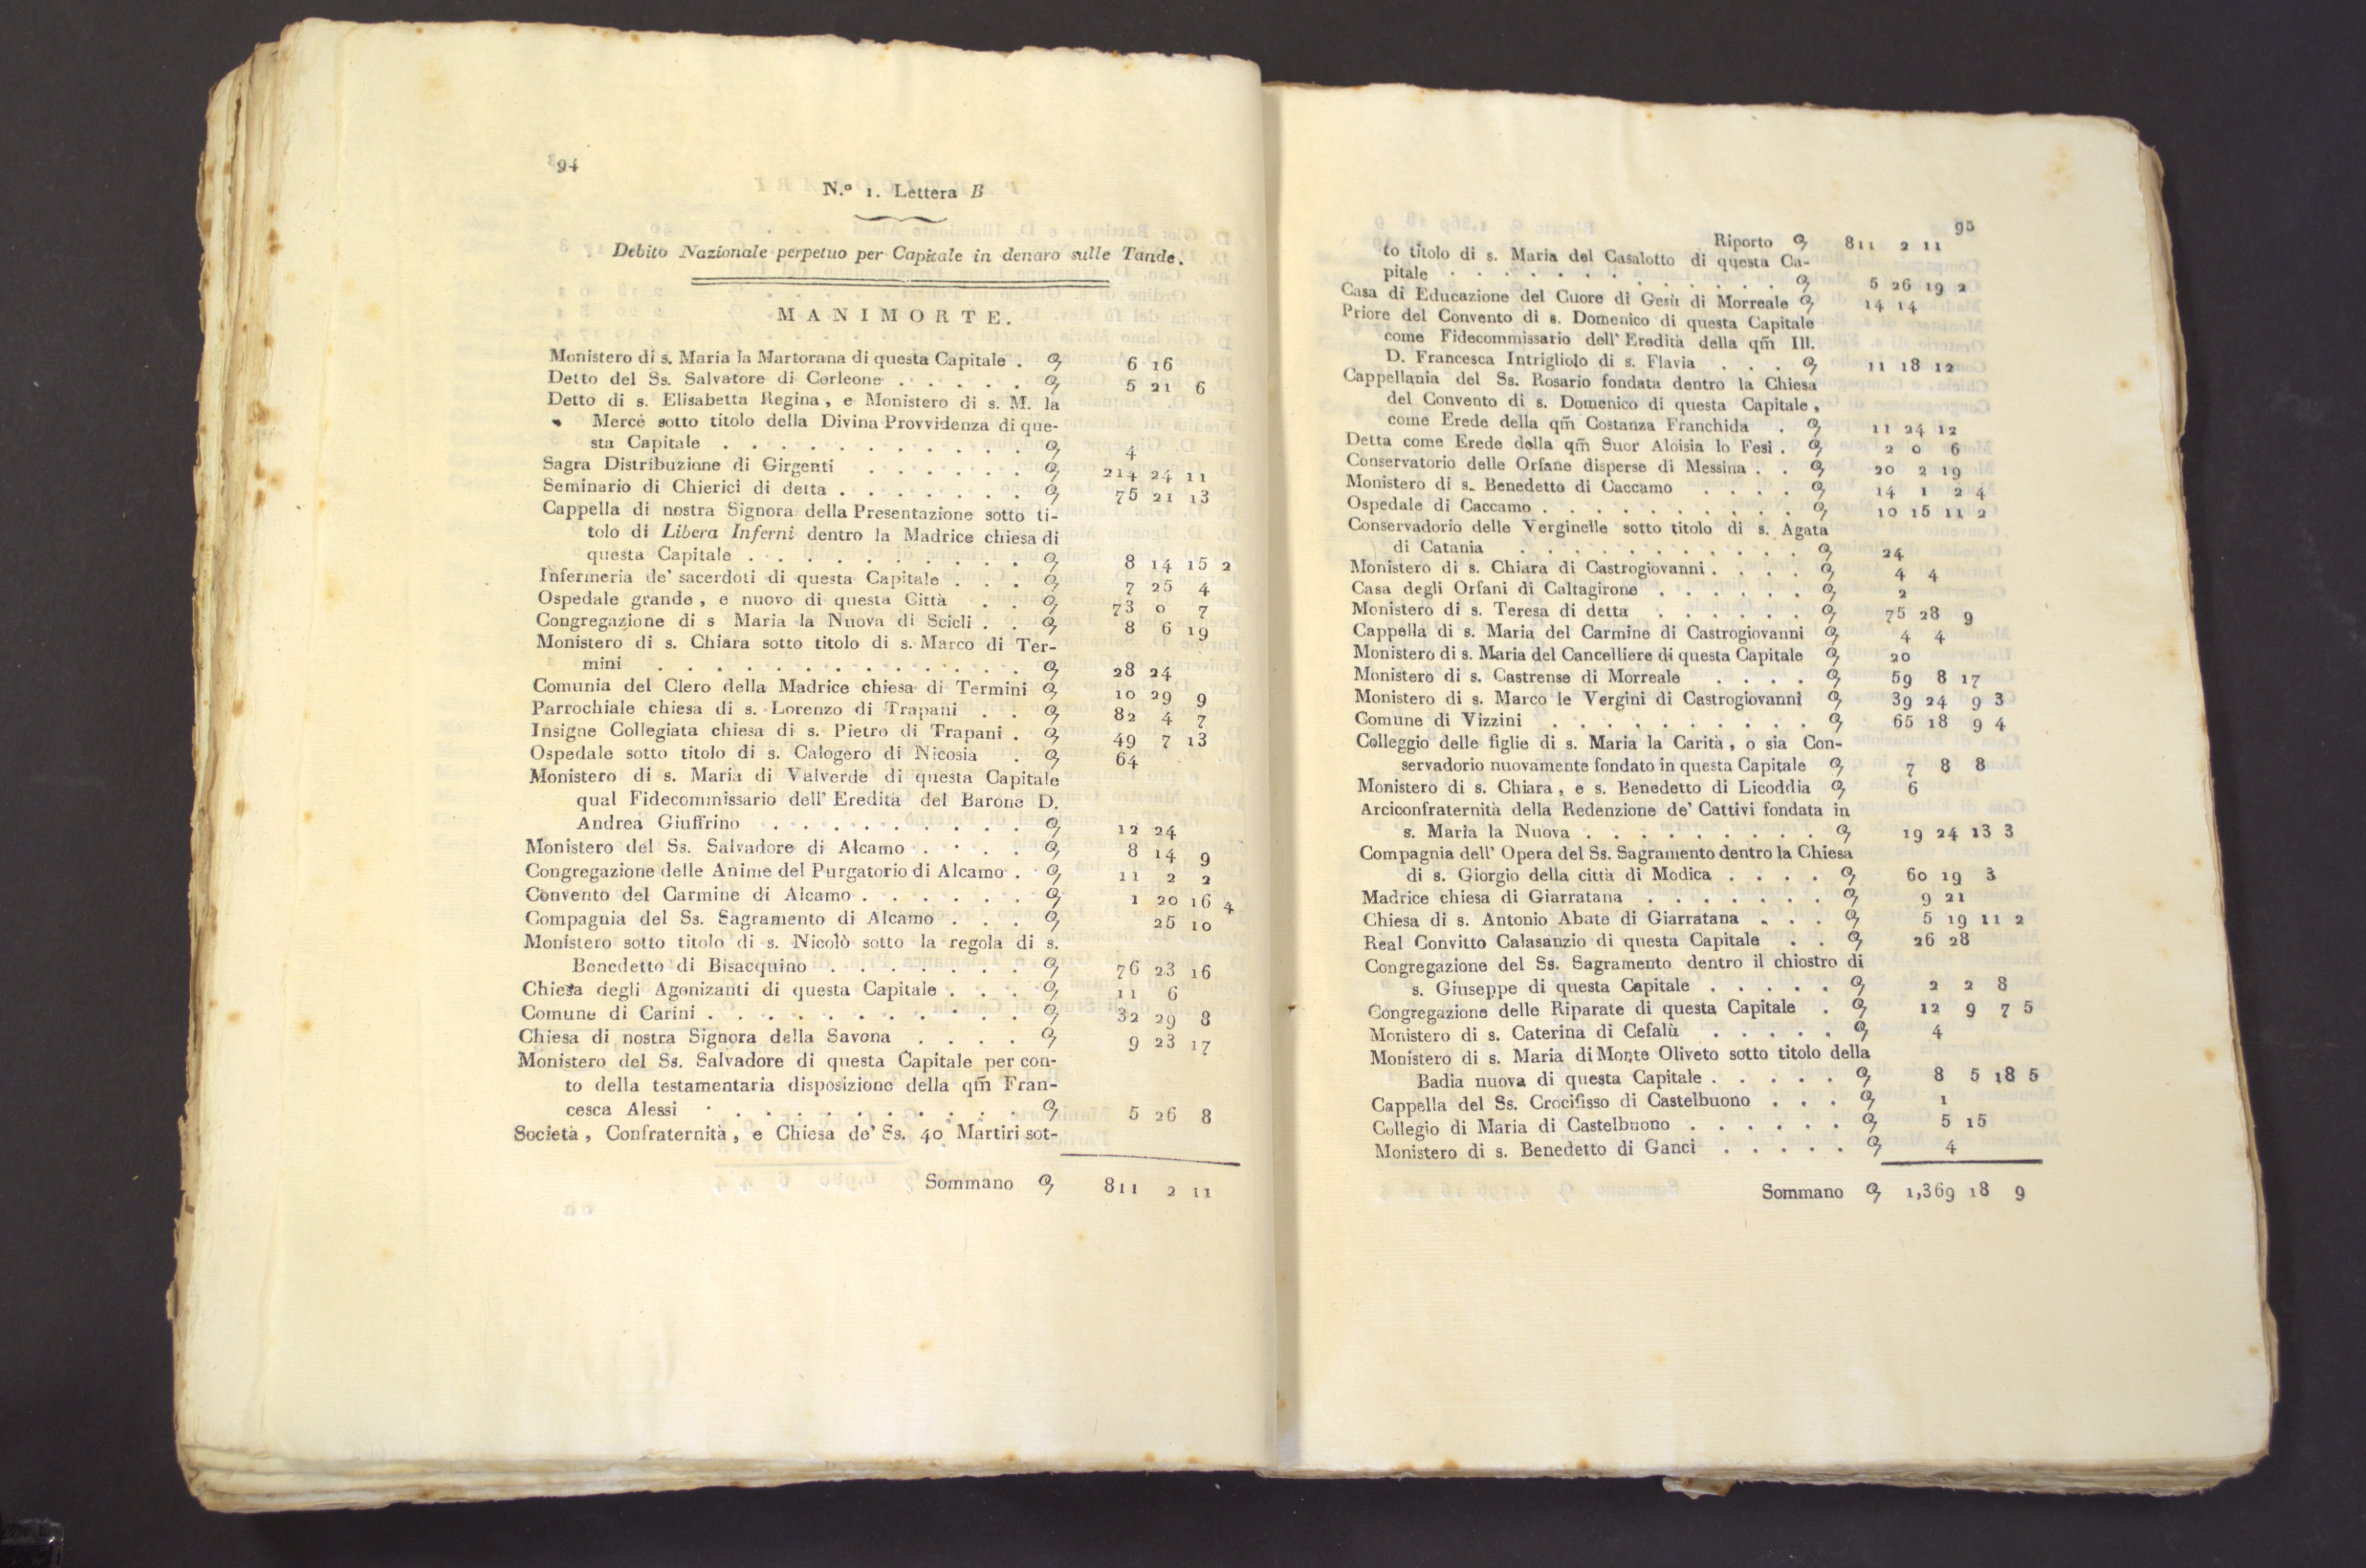 94
N.º 1. Lettera B
Debito Nazionale perpetuo per Capitale in denaro sulle Tande.
MANIMORTE.
Monistero di s. Maria la Martorana di questa Capitale . 6 16
Detto del Ss. Salvatore di Corleone . . . . . 5 21 6
Detto di s. Elisabetta Regina, e Monistero di s. M. la
Mercè sotto titolo della Divina Provvidenza di que-
sta Capitale . . . . . . . . . . . 4
Sagra Distribuzione di Girgenti . . . . . . 214 24 11
Seminario di Chierici di detta . . . . . . . 75 21 13
Cappella di nostra Signora della Presentazione sotto ti-
tolo di Libera Inferni dentro la Madrice chiesa di
questa Capitale . . . . . . . . . . 8 14 15 2
Infermeria de' sacerdoti di questa Capitale . . . 7 25 4
Ospedale grande, e nuovo di questa Città . . 73 0 7
Congregazione di s Maria la Nuova di Scicli . . 8 6 19
Monistero di s. Chiara sotto titolo di s. Marco di Ter-
mini . . . . . . . . . . . . . 28 24
Comunia del Clero della Madrice chiesa di Termini 10 29 9
Parrochiale chiesa di s. Lorenzo di Trapani . . 82 4 7
Insigne Collegiata chiesa di s. Pietro di Trapani . 49 7 13
Ospedale sotto titolo di s. Calogero di Nicosia . 64
Monistero di s. Maria di Valverde di questa Capitale
qual Fidecommissario dell' Eredità del Barone D.
Andrea Giuffrino . . . . . . . . . 12 24
Monistero del Ss. Salvadore di Alcamo . . . . 8 14 9
Congregazione delle Anime del Purgatorio di Alcamo . 11 2 2
Convento del Carmine di Alcamo . . . . . . 1 20 16 4
Compagnia del Ss. Sagramento di Alcamo . . . 25 10
Monistero sotto titolo di s. Nicolò sotto la regola di s.
Benedetto di Bisacquino . . . . . . . 76 23 16
Chiesa degli Agonizanti di questa Capitale . . . 11 6
Comune di Carini . . . . . . . . . . . 32 29 8
Chiesa di nostra Signora della Savona . . . . 9 23 17
Monistero del Ss. Salvadore di questa Capitale per con-
to della testamentaria disposizione della qm̃ Fran-
cesca Alessi . . . . . . . . . . . 5 26 8
Società, Confraternità, e Chiesa de' Ss. 40 Martiri sot-
Sommano 811 2 11
95
Riporto 811 2 11
to titolo di s. Maria del Casalotto di questa Ca-
pitale . . . . . . . . . . . . 5 26 19 2
Casa di Educazione del Cuore di Gesù di Morreale 14 14
Priore del Convento di s. Domenico di questa Capitale
come Fidecommissario dell' Eredità della qm̃ Ill.
D. Francesca Intrigliolo di s. Flavia . . . 11 18 12
Cappellania del Ss. Rosario fondata dentro la Chiesa
del Convento di s. Domenico di questa Capitale,
come Erede della qm̃ Costanza Franchida . 11 24 12
Detta come Erede della qm̃ Suor Aloisia lo Fesi . 2 0 6
Conservatorio delle Orfane disperse di Messina . . 20 2 19
Monistero di s. Benedetto di Caccamo . . . . 14 1 2 4
Ospedale di Caccamo . . . . . . . . . . 10 15 11 2
Conservadorio delle Verginelle sotto titolo di s. Agata
di Catania . . . . . . . . . . . 24
Monistero di s. Chiara di Castrogiovanni . . . . 4 4
Casa degli Orfani di Caltagirone . . . . . . 2
Monistero di s. Teresa di detta . . . . . . 75 28 9
Cappella di s. Maria del Carmine di Castrogiovanni 4 4
Monistero di s. Maria del Cancelliere di questa Capitale 20
Monistero di s. Castrense di Morreale . . . . 59 8 17
Monistero di s. Marco le Vergini di Castrogiovanni 39 24 9 3
Comune di Vizzini . . . . . . . . . . 65 18 9 4
Colleggio delle figlie di s. Maria la Carità, o sia Con-
servadorio nuovamente fondato in questa Capitale 7 8 8
Monistero di s. Chiara, e s. Benedetto di Licoddia 6
Arciconfraternità della Redenzione de' Cattivi fondata in
s. Maria la Nuova . . . . . . . . . 19 24 13 3
Compagnia dell' Opera del Ss. Sagramento dentro la Chiesa
di s. Giorgio della città di Modica . . . . 60 19 3
Madrice chiesa di Giarratana . . . . . . . 9 21
Chiesa di s. Antonio Abate di Giarratana . . . 5 19 11 2
Real Convitto Calasanzio di questa Capitale . . 26 28
Congregazione del Ss. Sagramento dentro il chiostro di
s. Giuseppe di questa Capitale . . . . . 2 2 8
Congregazione delle Riparate di questa Capitale . 12 9 7 5
Monistero di s. Caterina di Cefalù . . . . . 4
Monistero di s. Maria di Monte Oliveto sotto titolo della
Badia nuova di questa Capitale . . . . . 8 5 18 5
Cappella del Ss. Crocifisso di Castelbuono . . . 1
Collegio di Maria di Castelbuono . . . . . . 5 15
Monistero di s. Benedetto di Ganci . . . . . 4
Sommano 1,369 18 9